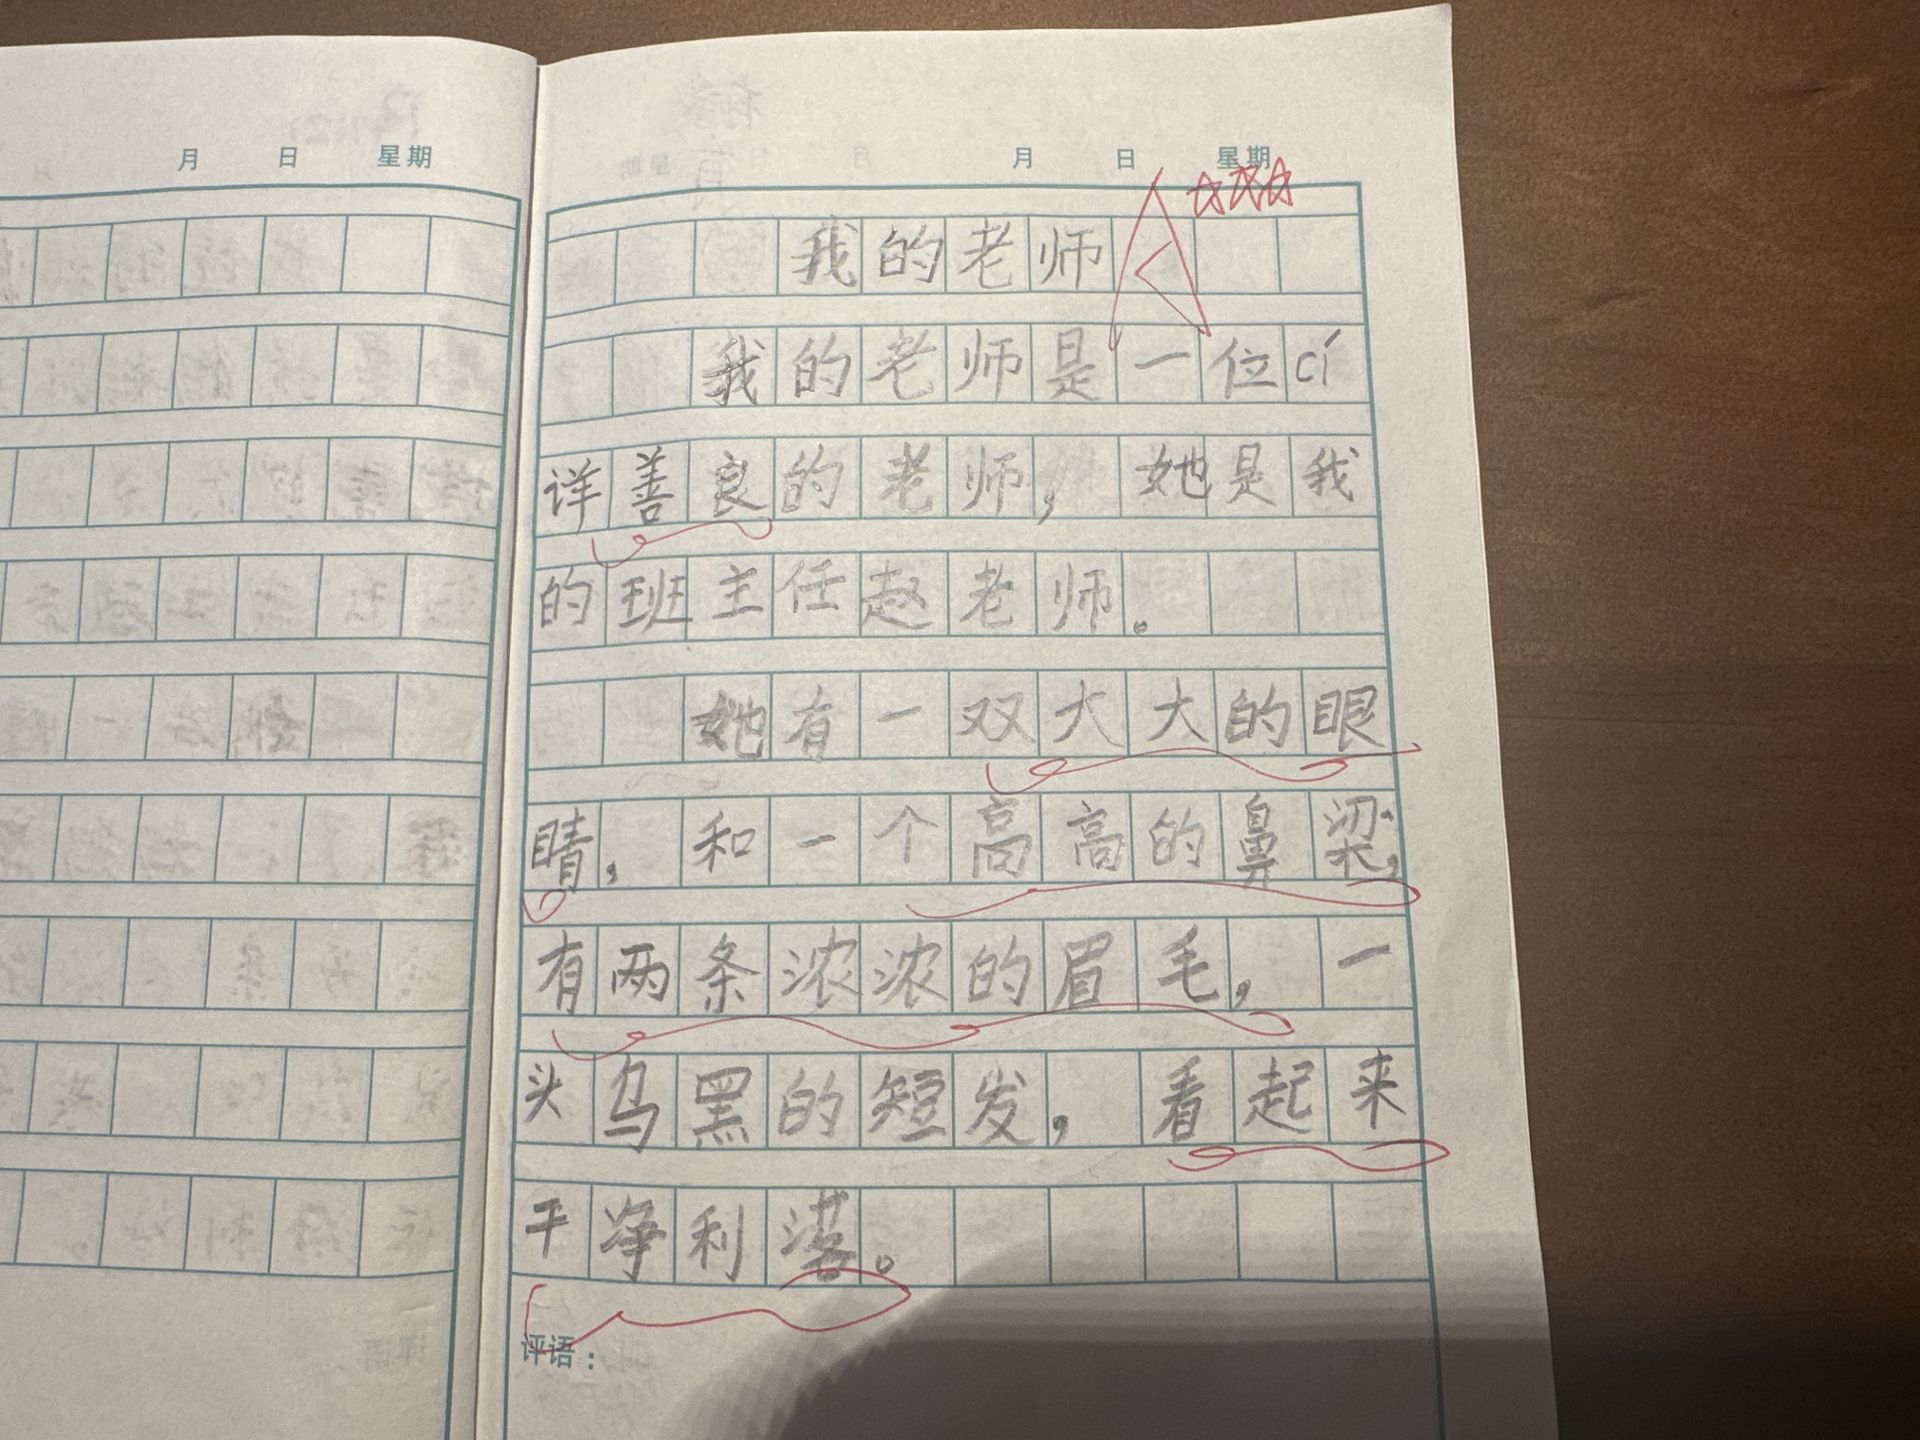 月 日 星期
月 日 星期
我的老师
我的老师是一位cí
详善良的老师，她是我
的班主任赵老师。
她有一双大大的眼
睛，和一个高高的鼻梁，
有两条浓浓的眉毛，一
头乌黑的短发，看起来
干净利落。
评语：